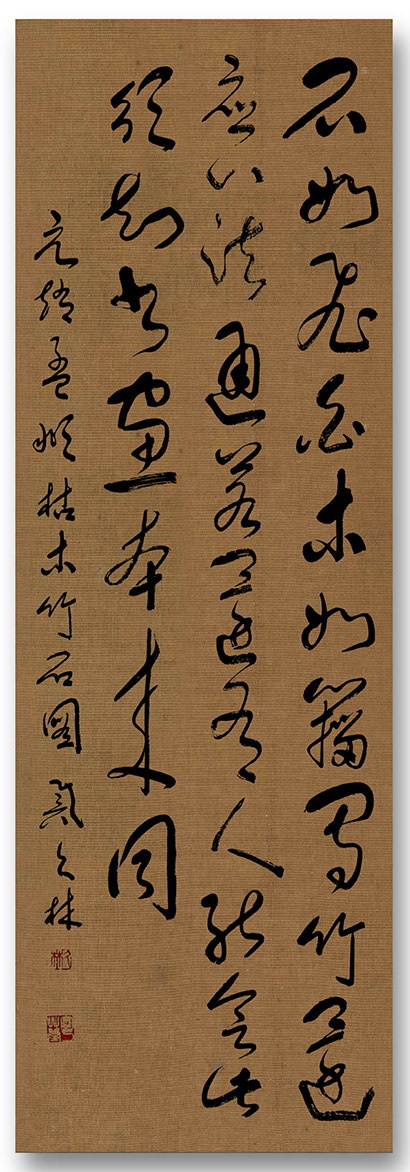 石如飛白木如籀寫竹還
應八法通若還有人能會此
須知書畫本來同
元趙孟頫枯木竹石圖 林